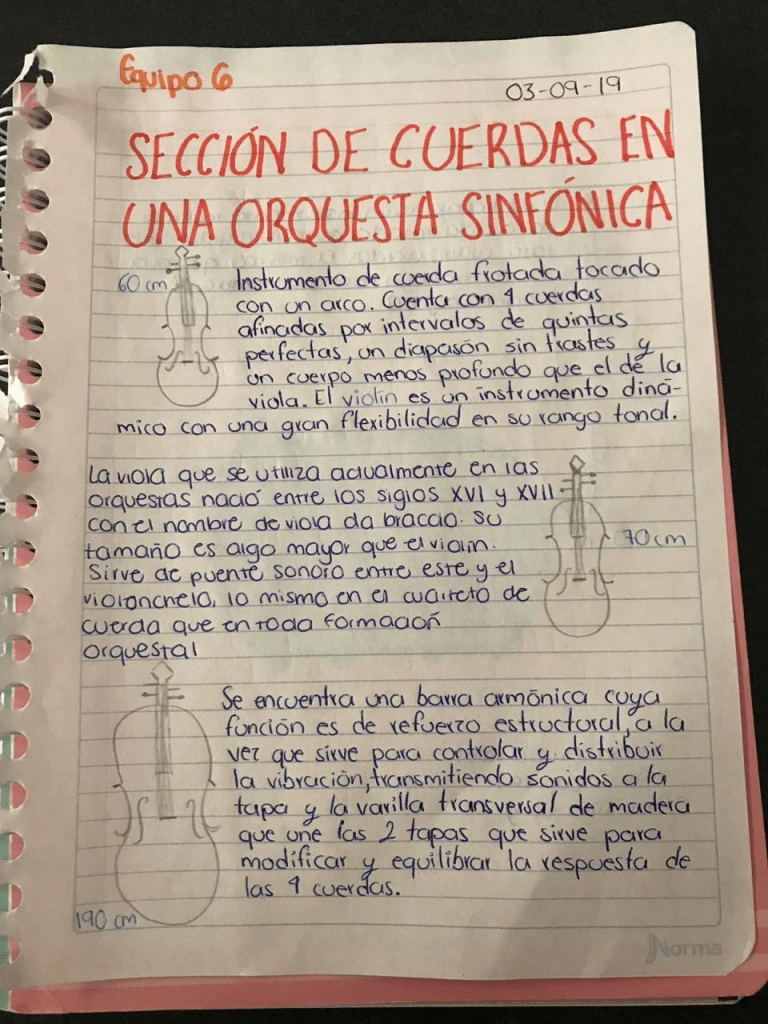 Equipo 6
03-09-19
SECCIÓN DE CUERDAS EN
UNA ORQUESTA SINFÓNICA
60 cm
Instrumento de cuerda frotada tocado
con un arco. Cuenta con 4 cuerdas
afinadas por intervalos de quintas
perfectas, un diapasón sin trastes y
un cuerpo menos profundo que el de la
viola. El violín es un instrumento diná-
mico con una gran flexibilidad en su rango tonal.
La viola que se utiliza actualmente en las
orquestas nació entre los siglos XVI y XVII
con el nombre de viola da braccio. Su
tamaño es algo mayor que el violín.
Sirve de puente sonoro entre este y el
violonchelo, lo mismo en el cuarteto de
cuerda que en toda formación
orquestal
70 cm
Se encuentra una barra armónica cuya
función es de refuerzo estructural, a la
vez que sirve para controlar y distribuir
la vibración, transmitiendo sonidos a la
tapa y la varilla transversal de madera
que une las 2 tapas que sirve para
modificar y equilibrar la respuesta de
las 4 cuerdas.
190 cm
Norma